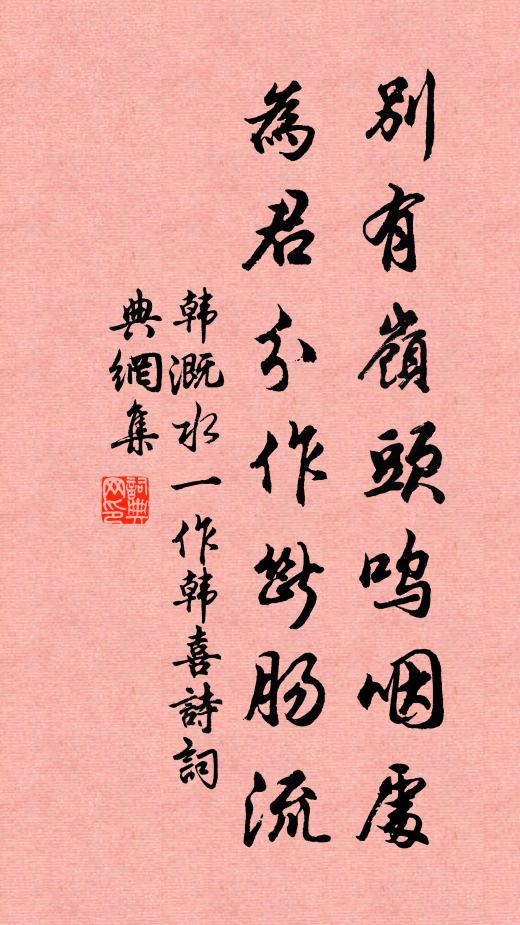 別有嶺頭嗚咽處
為君分作斷肠流
韩溉水一作韩喜詩詞
典網集
詞典
网印